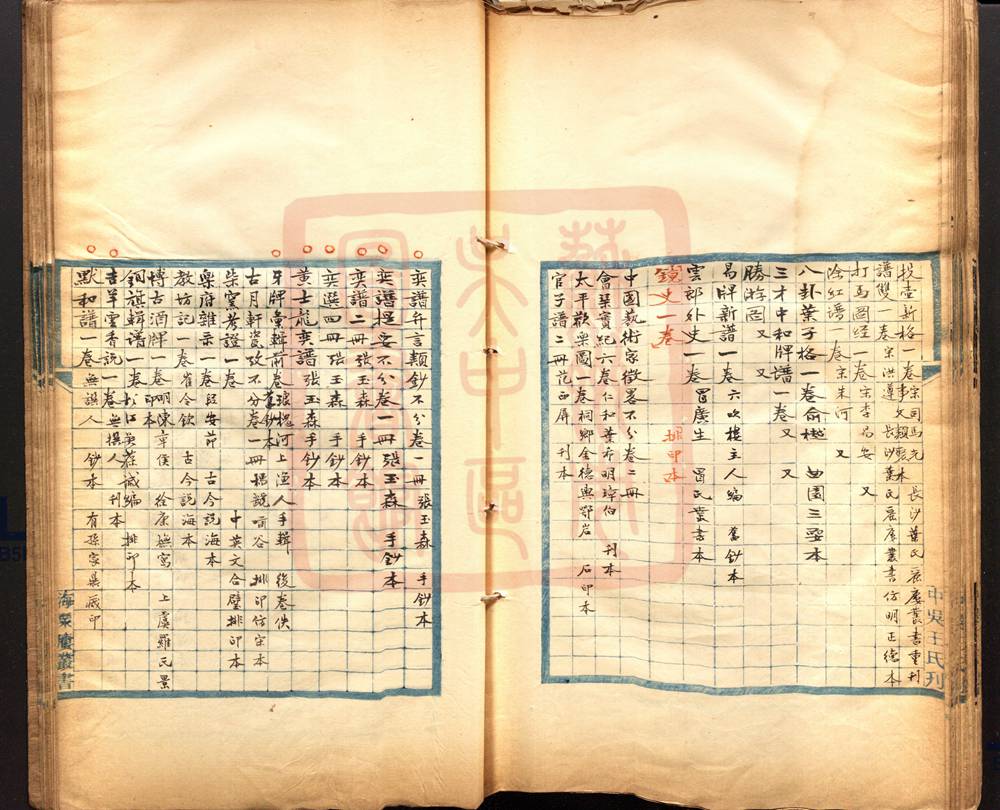 投壺新格一卷 宋司馬光 長沙葉氏 麗廔叢書重刊
譜雙一卷 宋洪遵 長沙葉氏 麗廔叢書仿明正德本
打馬圖經一卷 宋李易安 又
除紅譜一卷 宋朱河 又
八卦葉子格一卷 俞樾 曲園三耍本
三才中和牌譜一卷 又 又
勝游圖 又 又
易牌新譜一卷 六吹樓主人編 舊鈔本
雲郎外史一卷 冒廣生 冒氏叢書本
鏡史一卷 排印本
中國藝術家徵畧不分卷二冊
會琹實紀六卷 仁和葉希明璋伯 刊本
太平歡樂圖一卷 桐鄉金德輿鄂岩 石印本
官子譜二冊 范西屏 刊本
中吳王氏刊
弈譜弁言類鈔不分卷一冊 張玉森 手鈔本
弈譜提要不分卷一冊 張玉森 手鈔本
弈譜二冊 張玉森 手鈔本
弈選四冊 張玉森 手鈔本
黃士龍弈譜 張玉森手鈔本
牙牌彙輯前卷 琅槐河上漁人手輯 後卷佚 舊鈔本
古月軒瓷攷不分卷一冊 楊歗谷 排印仿宋本
柴窯考證一卷 中英文合璧排印本
樂府雜录一卷 段安節 古今說海本
教坊記一卷 崔令欽 古今說海本
博古酒牌一卷 明陳章侯 徐康橅寫 上虞羅氏景印本
銅旗輯譜一卷 松江 編 排印本
吉羊雲香說一卷 無撰人 刊本
默和譜一卷 無譔人 鈔本 有孫家鼐藏印
海粟廬叢書